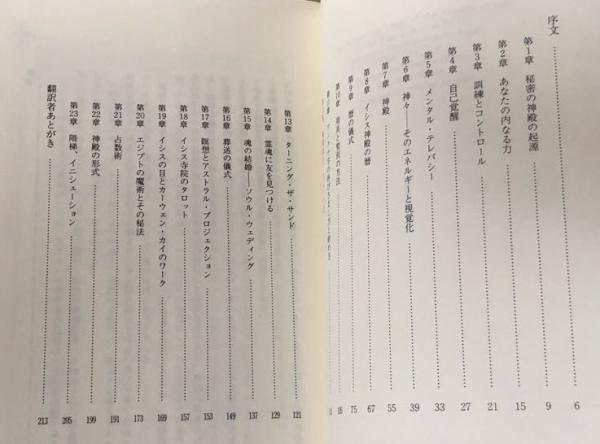 序文 6
第1章 秘密の神殿の起源 9
第2章 あなたの内なる力 15
第3章 訓練とコントロール 21
第4章 自己覚醒 27
第5章 メンタル・テレパシー 33
第6章 神々――そのエネルギーと視覚化 39
第7章 神殿 55
第8章 イシス神殿の暦 67
第9章 暦の儀式 75
第10章
第13章 ターニング・ザ・サンド 121
第14章 霊魂に友を見つける 129
第15章 魂の結婚――ソウル・ウェディング 137
第16章 葬送の儀式 149
第17章 瞑想とアストラル・プロジェクション 153
第18章 イシス寺院のタロット 157
第19章 イシスの目とカーウェン・カイのワーク 169
第20章 エジプトの魔術とその秘法 173
第21章 占数術 191
第22章 神殿の形式 199
第23章 階梯、イニシェーション 205
翻訳者あとがき 213